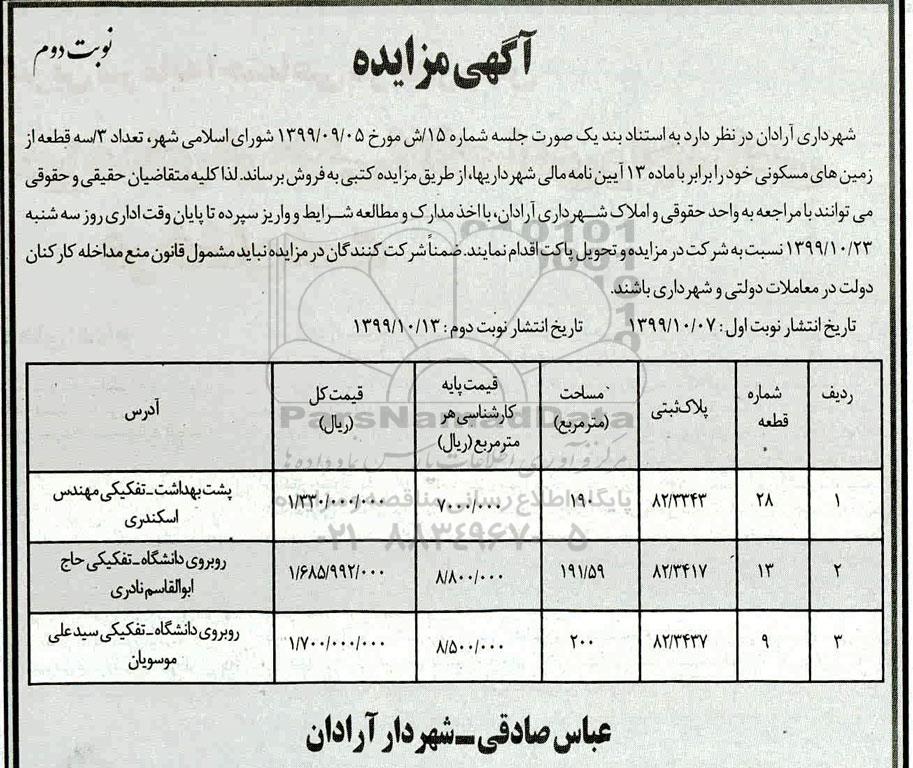 نوبت دوم
آگهی مزایده
شهرداری آرادان در نظر دارد به استناد بند یک صورت جلسه شماره ۱۵/ش مورخ ۱۳۹۹/۰۹/۰۵ شورای اسلامی شهر، تعداد ۳/سه قطعه از
زمین های مسکونی خود را برابر با ماده ۱۳ آیین نامه مالی شهرداریها، از طریق مزایده کتبی به فروش برساند. لذا کلیه متقاضیان حقیقی و حقوقی
می توانند با مراجعه به واحد حقوقی و املاک شهرداری آرادان، با اخذ مدارک و مطالعه شرایط و واریز سپرده تا پایان وقت اداری روز سه شنبه
۱۳۹۹/۱۰/۲۳ نسبت به شرکت در مزایده و تحویل پاکت اقدام نمایند. ضمناً شرکت کنندگان در مزایده نباید مشمول قانون منع مداخله کارکنان
دولت در معاملات دولتی و شهرداری باشند.
تاریخ انتشار نوبت اول: ۱۳۹۹/۱۰/۰۷ تاریخ انتشار نوبت دوم: ۱۳۹۹/۱۰/۱۳
ردیف شماره قطعه پلاک ثبتی مساحت (مترمربع) قیمت پایه کارشناسی هر مترمربع (ریال) قیمت کل (ریال) آدرس
۱ ۲۸ ۸۲/۳۳۴۳ ۱۹۰ ۷۰۰۰/۰۰۰ ۱/۳۳۰/۰۰۰/۰۰۰ پشت بهداشت ـ تفکیکی مهندس اسکندری
۲ ۱۳ ۸۲/۳۴۱۷ ۱۹۱/۵۹ ۸/۸۰۰/۰۰۰ ۱/۶۸۵/۹۹۲/۰۰۰ روبروی دانشگاه ـ تفکیکی حاج ابوالقاسم نادری
۳ ۹ ۸۲/۳۴۳۷ ۲۰۰ ۸/۵۰۰/۰۰۰ ۱/۷۰۰/۰۰۰/۰۰۰ روبروی دانشگاه ـ تفکیکی سیدعلی موسویان
ParsNamadData
مرکز فرآوری اطلاعات پارس نماد داده ها
پایگاه اطلاع رسانی مناقصه و مزایده
۰۲۱-۸۸۳۴۹۶۷۰-۵
عباس صادقی ـ شهردار آرادان